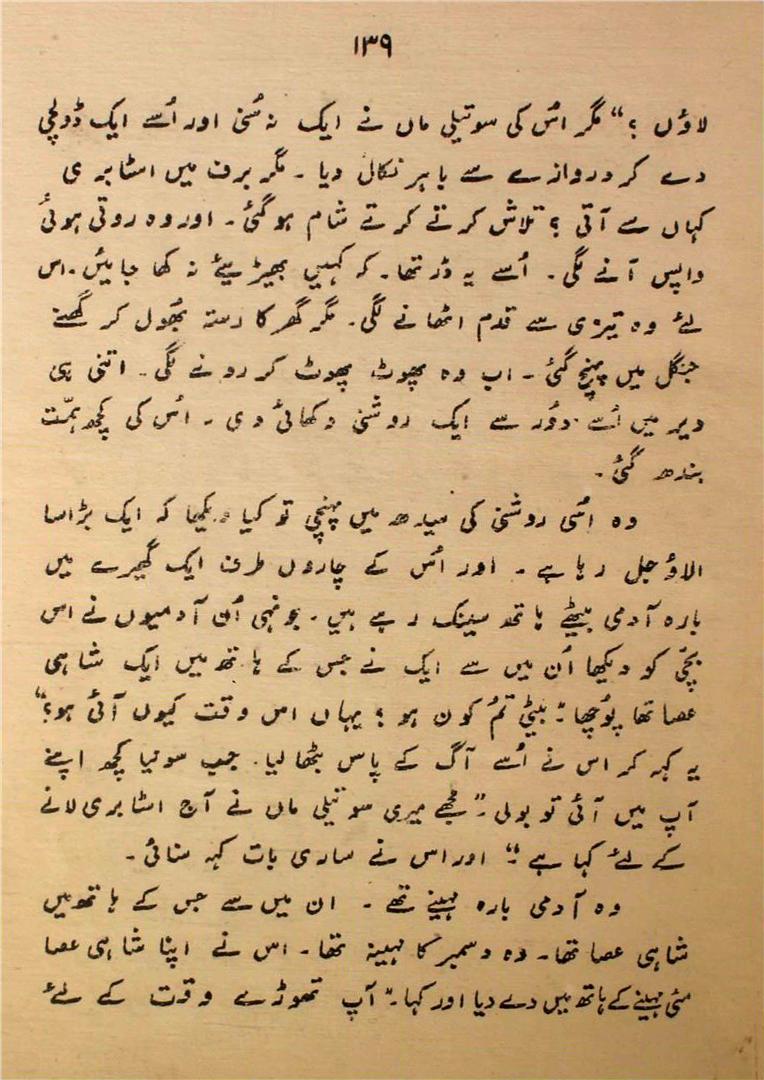 ۱۳۹
لاؤں ؟“ مگر اُس کی سوتیلی ماں نے ایک نہ سُنی اور اُسے ایک ڈولچی
دے کر دروازے سے باہر نکال دیا ۔ مگر برف میں اسٹابری
کہاں سے آتی ؟ تلاش کرتے کرتے شام ہو گئی ۔ اور وہ روتی ہوئی
واپس آنے لگی ۔ اُسے یہ ڈر تھا ۔ کہ کہیں بھیڑیئے نہ کھا جایئں ۔ اس
لئے وہ تیزی سے قدم اٹھانے لگی ۔ مگر گھر کا رستہ بھُول کر گھنے
جنگل میں پہنچ گئی ۔ اب وہ پھوٹ پھوٹ کر رونے لگی ۔ اتنی ہی
دیر میں اُسے دوُر سے ایک روشنی دکھائی دی ۔ اُس کی کچھ ہمّت
بندھ گئی ۔
وہ اسُی روشنی کی سیدھ میں پہنچی تو کیا دیکھا کہ ایک بڑا سا
الاؤ جل رہا ہے ۔ اور اُس کے چاروں طرف ایک گھیرے میں
بارہ آدمی بیٹھے ہاتھ سینک رہے ہیں ۔ جونہی اُن آدمیوں نے اس
بچّی کو دیکھا اُن میں سے ایک نے جس کے ہاتھ میں ایک شاہی
عصا تھا پوُچھا :” بیٹی تمُ کون ہو ؟ یہاں اس وقت کیوں آئی ہو ؟“
یہ کہہ کر اس نے اُسے آگ کے پاس بٹھا لیا ۔ جب سونیا کچھ اپنے
آپ میں آئی تو بولی ۔” مجھے میری سوتیلی ماں نے آج اسٹابری لانے
کے لئے کہا ہے ۔“ اور اس نے ساری بات کہہ سنائی ۔
وہ آدمی بارہ مہینے تھے ۔ ان میں سے جس کے ہاتھ میں
شاہی عصا تھا ۔ وہ دسمبر کا مہینہ تھا ۔ اس نے اپنا شاہی عصا
مئی مہینے کے ہاتھ میں دے دیا اور کہا ۔” آپ تھوڑے وقت کے لئے